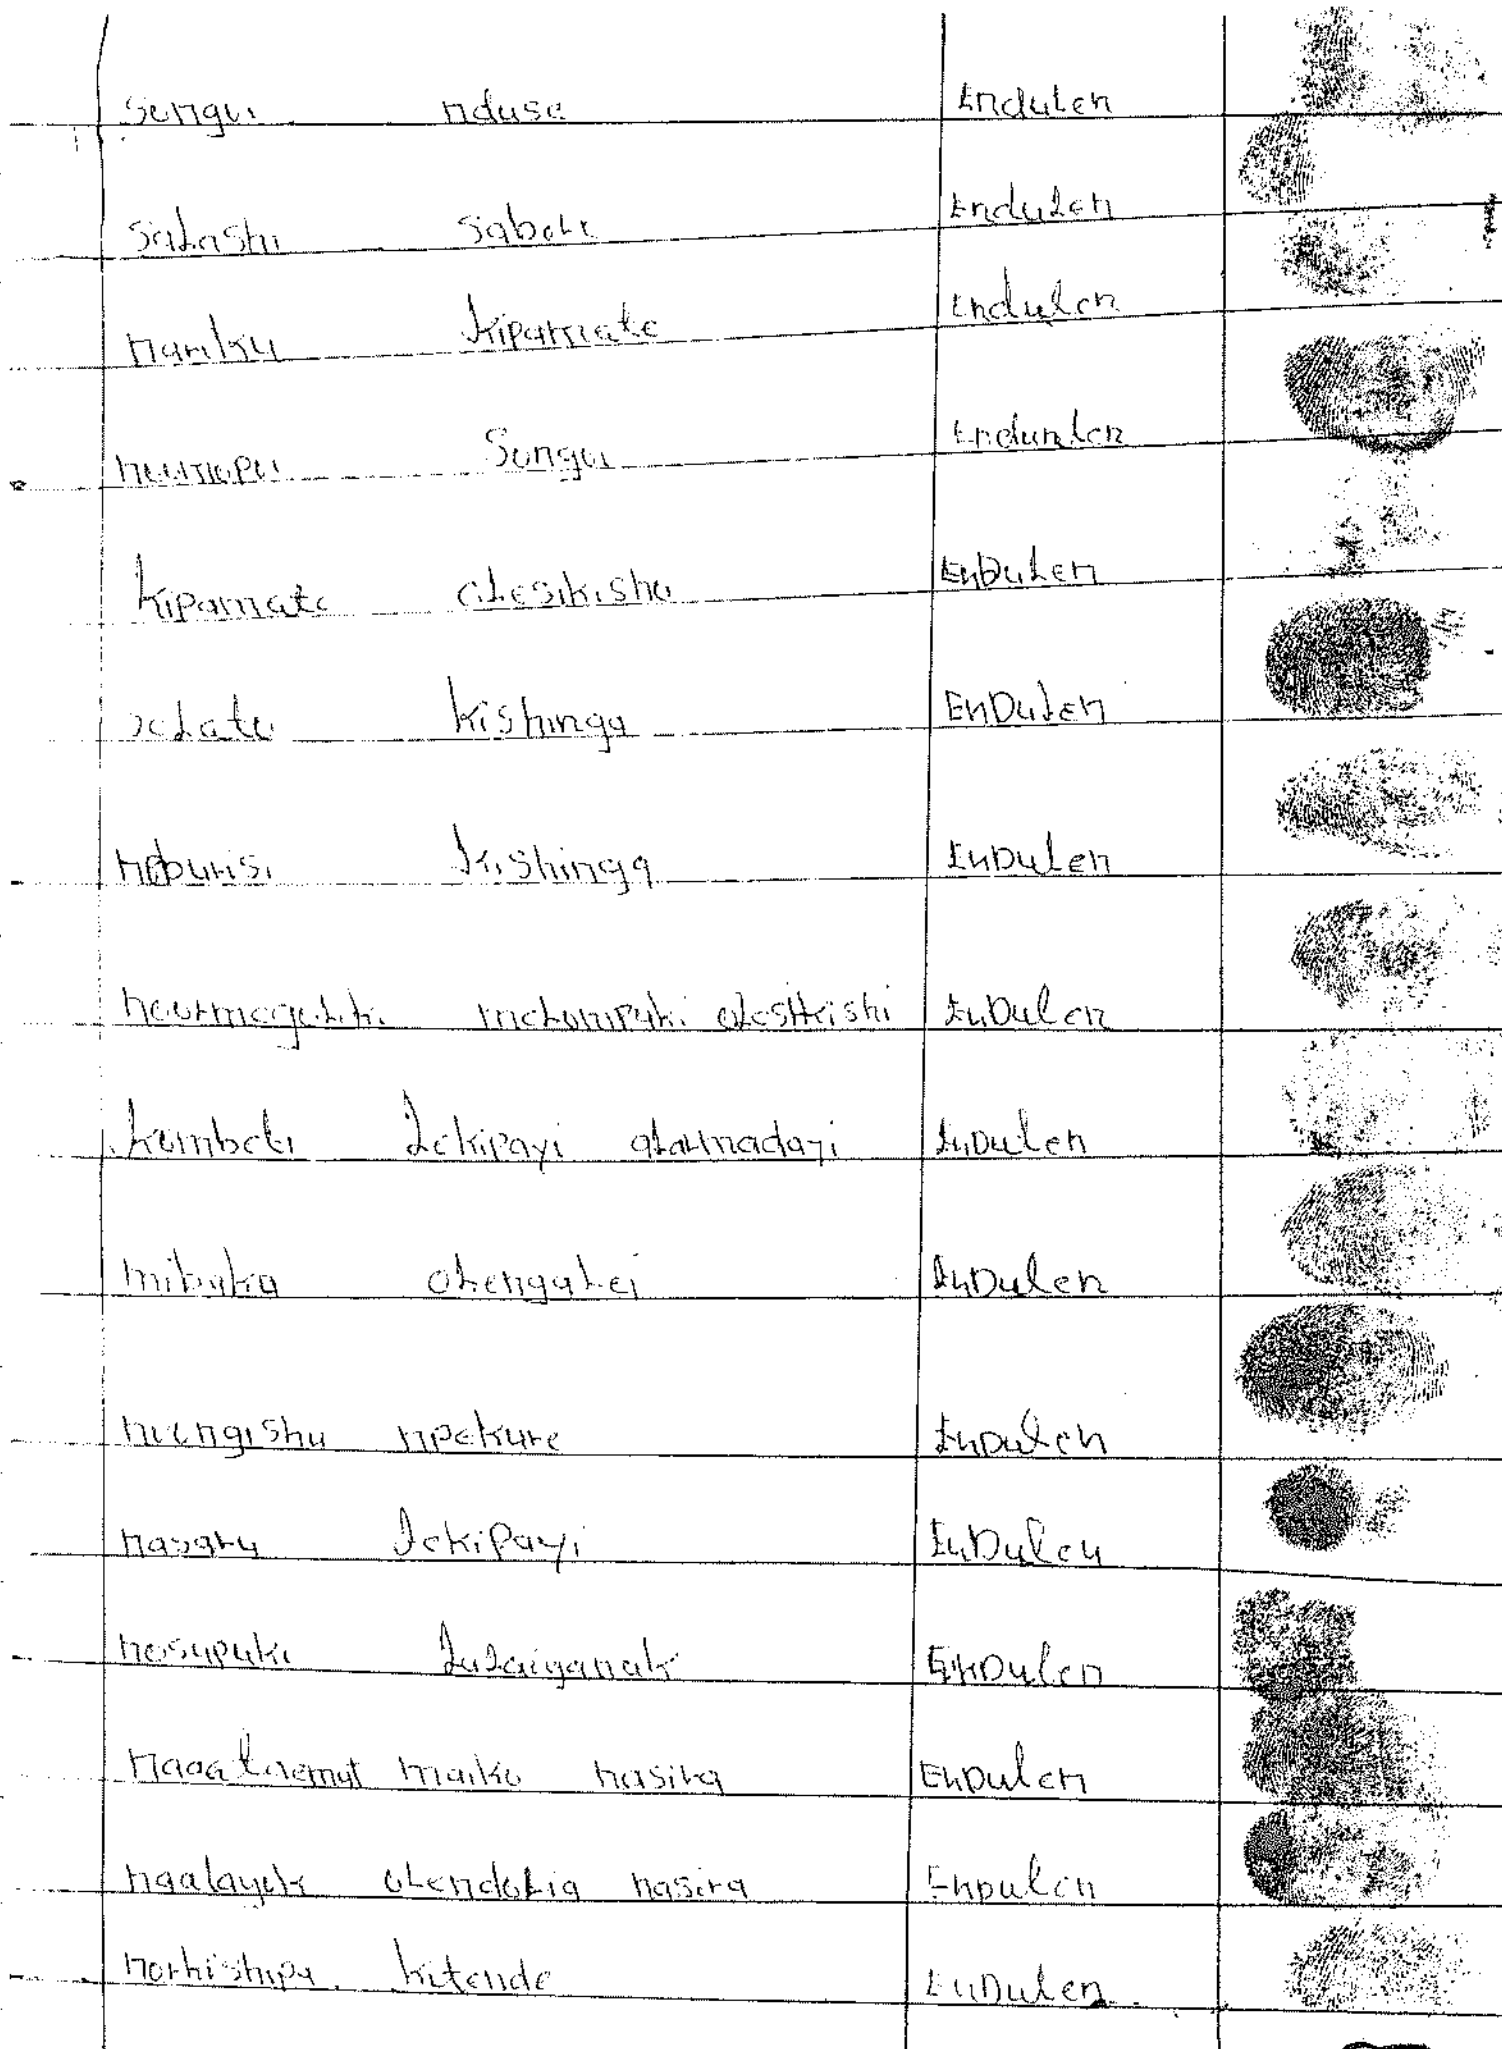 Sengui nduse Endulen
Salashi Saboti Endulen
nariku kipamate Endulen
Sengui Endunlen
kipamate olesikishu EnDulen
kishinga EnDulen
kishinga EnDulen
olesikishi EnDulen
kumbeti Lekipayi olalmadayi EnDulen
mibuku olengulei EnDulen
niengishu npekure EnDulen
nasaru Lekipayi EnDulen
nosupuki Lulaiyanak EnDulen
maiko nasira EnDulen
ngalayok olendokia nasira EnDulen
norkishipu kitende EnDulen